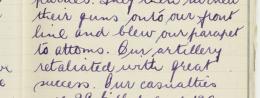 their guns onto our front
line and blew our parapet
to attoms. Our artillery
retaliated with great
success. Our casualties